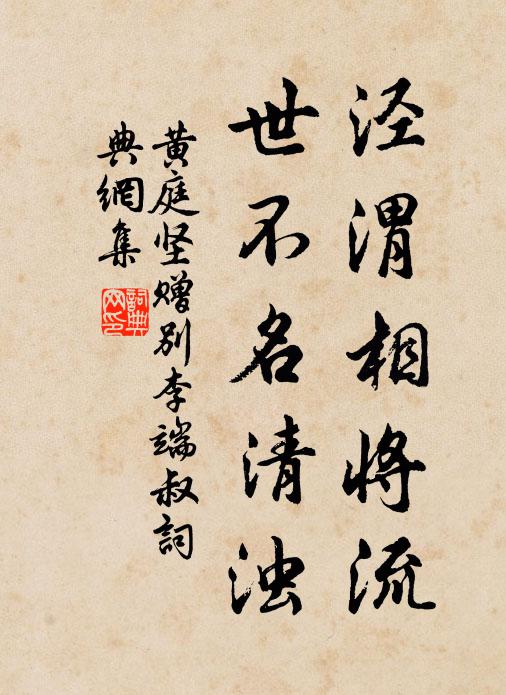 泾渭相将流
世不名清浊
黄庭坚赠别李端叔詞
典網集
詞典
网印